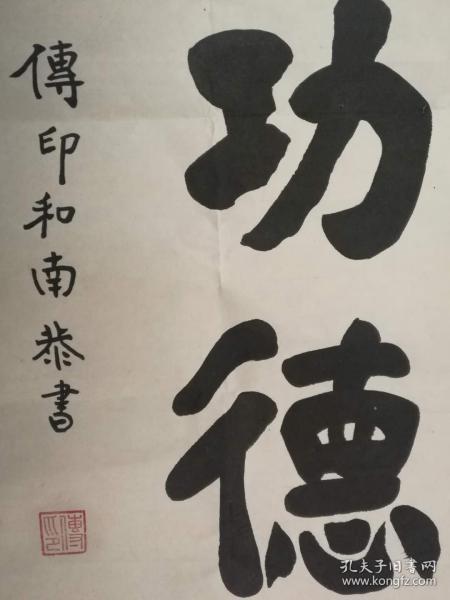 功德
傳印和南恭書
傳印
孔夫子旧书网
www.kongfz.com